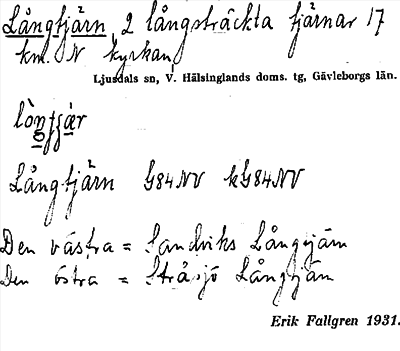 Långtjärn, 2 långsträckta tjärnar 17
km. N kyrkan,
Ljusdals sn, V. Hälsinglands doms. tg, Gävleborgs län.
Långtjärn G84NV kG84NV
Den västra = Sandviks Långtjärn
Den östra = Stråsjö Långtjärn
Erik Fallgren 1931.